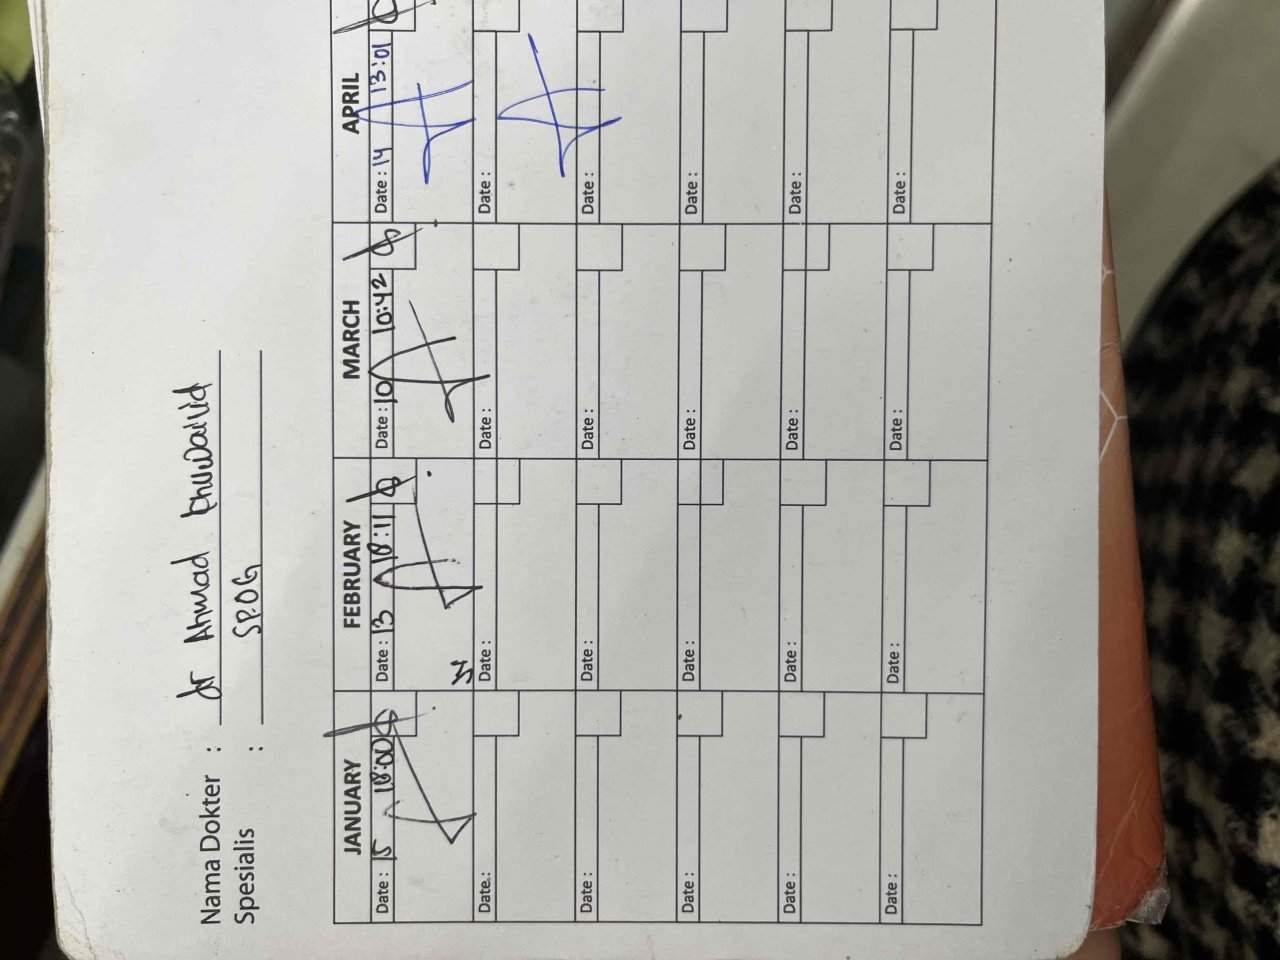 Nama Dokter : dr Ahmad Khuwailid
Spesialis : SP.OG
JANUARY FEBRUARY MARCH APRIL
Date : 15 18:00 Date : 13 18:11 Date : 10 10:42 Date : 14 13:01
Date : Date : Date : Date :
Date : Date : Date : Date :
Date : Date : Date : Date :
Date : Date : Date : Date :
Date : Date : Date : Date :